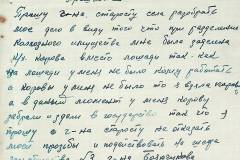 Прошу г-на, старосту села разобрать
мое дело в виду того что при разделении
колхозного имущества мне была заделена
корова вместо лошади так-как
на лошади у меня не было кому работать
а коровы у меня не было то я взяла корову
а в данный момент у меня корову
забрали и здали в государство так что
прошу г-на старосту не отказать
моей прозьбы и подействовать не щадя
г-на